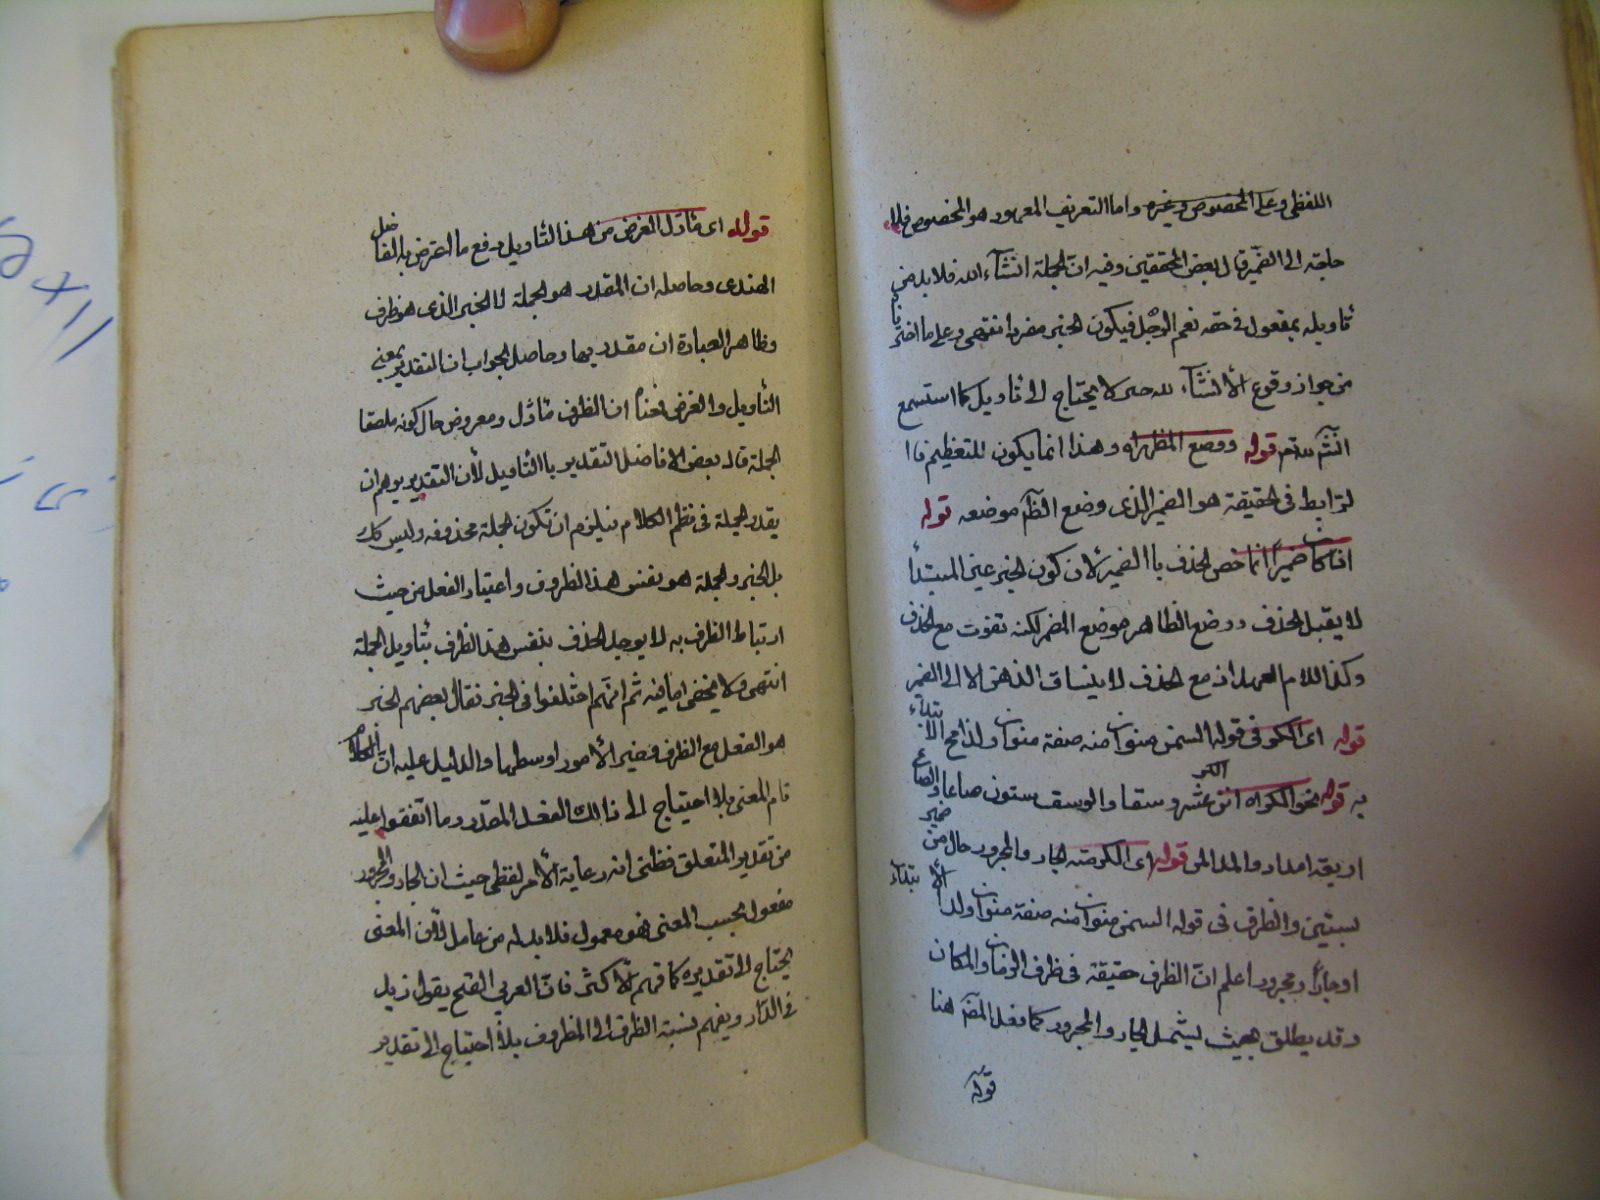 اللفظي وعلى المخصوص وغيره واما التعريف المعهود هو المخصوص فلا
حاجة الى الضمير قال بعض المحققين وفيه ان الجملة انشاء الله فلا بد من
تاويله بمقعول في حقه نعم الرجل فيكون الخبر مفردا انتهى وعلى ما اختر
من جواز وقوع الانشاء لا يحتاج الى تاويل كما استسمع
قوله ووضع المظهراه وهذا انما يكون للتعظيم فا
لرابط في الحقيقة هو الضمير الذى وضع الظا موضعه قوله
اذا كان ضميرا انما خص الحذف باالضمير لان كون الخبر عين المبتدأ
لا يقبل الحذف ووضع الظاهر موضع المضمر لكنه تفوت مع الحذف
وكذا اللام العهد اذ مع الحذف لا ينساق الذهن الا الى الضمير
قوله اى الكر في قوله السمن منوان منه صفة منوان ولذا مح الابتداء
به قوله نحو البر الكراه اثنى عشر وسقا والوسق ستون صاعا والصاع
اربعة امداد والمد قوله اى الكر منه الجار والمجرور حال من ضمير
بستين والظرف فى قوله السمن منوان منه صفة منوان ولذا الابتداء
او جارا ومجرورا اعلم ان الظرف حقيقة فى ظرف الزمان والمكان
وقد يطلق بحيث ليشمل الجار والمجرور كما فعل المص هنا
قوله
قوله اى مأول الغرض من هذا التأويل دفع ما اعترض به الفاضل
الهندى وحاصله ان المقدر هو الجملة لا الخبر الذى هو ظرف
وظاهر العبارة ان مقدر بها وحاصل الجواب ان التقدير بمعنى
التأويل والغرض فمعناه ان الظرف مأول ومعروض حال كونه ملصقا
الجملة قال بعض الافاضل التقدير باالتأويل لأن التقدير يوهم ان
يقدر الجملة فى نظم الكلام فيلزم ان تكون الجملة محذوفة وليس كك
بل الخبر والجملة هو نفس هذا الظروف واعتبار الفعل من حيث
ارتباط الظرف به لا يوجد الحذف بنفس هذا الظرف بتأويل الجملة
انتهى ولا يخفى ما فيه ثم انهم اختلفوا فى الخبر فقال بعضهم الخبر
هو الفعل مع الظرف فخير الأمور اوسطها والدليل عليه ان الكلام
تام المعنى بلا احتياج الى ذالك الفعل المقدر وما اتفقوا عليه
من تقدير المتعلق فظنى انه رعاية لأمر لفظى حيث ان الجار والمجرور
مفعول بحسب المعنى فهو معمول فلا بد له من عامل لأن المعنى
يحتاج الى تقديره كما فهم الاكثر فان العربي القح يقول زيد
فى الدار ويفهم نسبة الظرف الى المظروف بلا احتياج الى تقدير